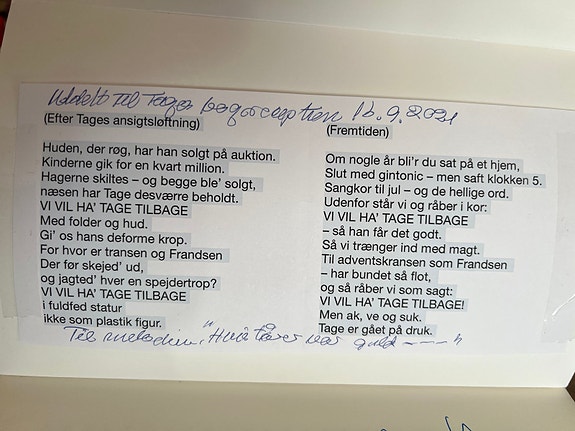 Uddelt til Tages bogreception 16.9.2021
(Efter Tages ansigtsløftning)
Huden, der røg, har han solgt på auktion.
Kinderne gik for en kvart million.
Hagerne skiltes – og begge ble' solgt,
næsen har Tage desværre beholdt.
VI VIL HA' TAGE TILBAGE
Med folder og hud.
Gi' os hans deforme krop.
For hvor er transen og Frandsen
Der før skejed' ud,
og jagted' hver en spejdertrop?
VI VIL HA' TAGE TILBAGE
i fuldfed statur
ikke som plastik figur.
(Fremtiden)
Om nogle år bli'r du sat på et hjem,
Slut med gintonic – men saft klokken 5.
Sangkor til jul – og de hellige ord.
Udenfor står vi og råber i kor:
VI VIL HA' TAGE TILBAGE
– så han får det godt.
Så vi trænger ind med magt.
Til adventskransen som Frandsen
– har bundet så flot,
og så råber vi som sagt:
VI VIL HA' TAGE TILBAGE!
Men ak, ve og suk.
Tage er gået på druk.
Til melodien "Hvis tårer var guld ---- "